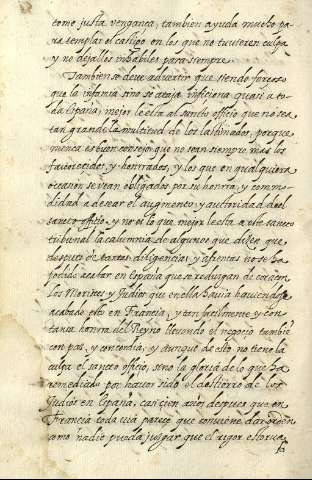 como justa vengança, tambien ayuda mucho pa-
ra templar el castigo en los que no tuuieren culpa
y no dejallos inhabiles para siempre.
Tambien se deue aduertir que siendo forçoso
que la infamia sino se ataja inficiona quasi a to-
da España, mejor le esta al sancto officio que no sea
tan grande la multitud de los lastimados, porque
nunca es buen consejo que no sean siempre mas los
fauorecidos, y honrrados, y los que en qualquiera
ocasion se vean obligados por su honrra, y commo-
didad a desear el augmento, y autoridad del
sancto officio, y no es lo que mejor le esta a este sancto
tribunal la calumnia de algunos que dizen que
despues de tantas diligencias, y afrentas no se ha
podido acabar en España que se reduzgan de coraçon
los Moriscos, y Judios que en ella hauia hauiendose
acabado esto en Francia, y tan facilmente y con
tanta honrra del Reyno lleuando el negocio tambien
con paz, y concordia, y aunque de esto no tiene la
culpa el sancto officio, sino la gloria de lo que ha
remediado por hauer sido el destierro de los
Judios en España, casi cien años despues que en
Francia toda uia pareçe que conuiene dar orden
como nadie pueda juzgar que el rigor estorue